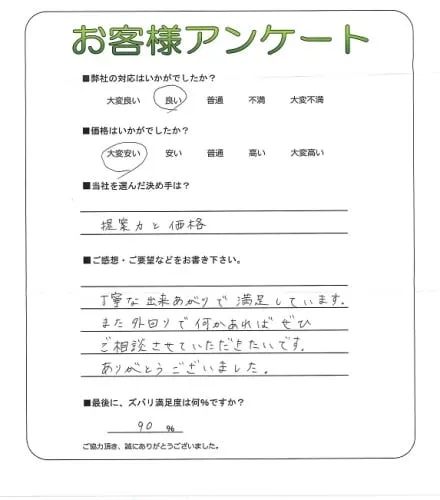 お客様アンケート
■弊社の対応はいかがでしたか？
大変良い 良い 普通 不満 大変不満
■価格はいかがでしたか？
大変安い 安い 普通 高い 大変高い
■当社を選んだ決め手は？
提案力と価格
■ご感想・ご要望などをお書き下さい。
丁寧な出来あがりで満足しています。
また外回りで何かあればぜひ
ご相談させていただきたいです。
ありがとうございました。
■最後に、ズバリ満足度は何%ですか？
90 %
ご協力頂き、誠にありがとうございました。